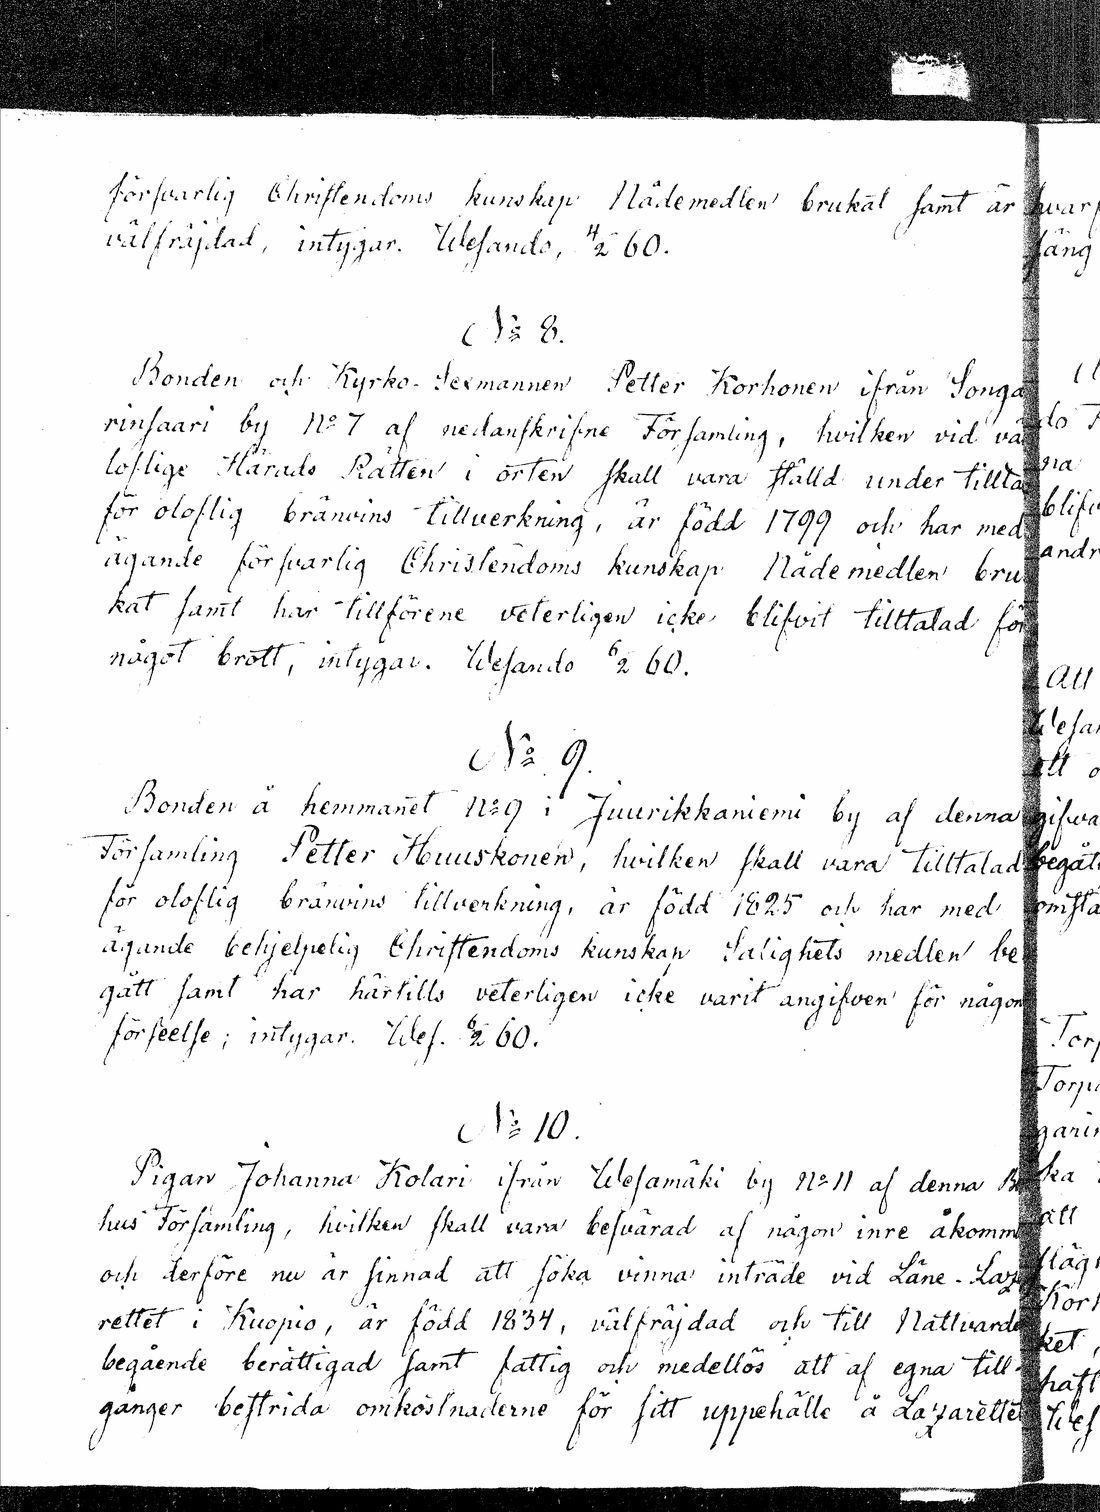 försvarlig Christendoms kunskap Nådemedlen brukat samt är
välfräjdad, intygar. Wesando, 4/2 60.
No 8.
Bonden och Kyrko-Sexmannen Petter Korhonen ifrån Songa
rinsaari by No 7 af nedanskrifne Församling, hvilken vid vä
loflige Härads Rätten i orten skall vara ställd under tillta
för oloflig bränvins tillverkning, är född 1799 och har med
ägande försvarlig Christendoms kunskap Nådemedlen bru
kat samt har tillförene veterligen icke blifvit tilltalad för
något brott, intygar. Wesando 6/2 60.
No 9.
Bonden å hemmanet No 9 i Juurikkaniemi by af denna
Församling Petter Huuskonen, hvilken skall vara tilltalad
för oloflig bränvins tillverkning, är född 1825 och har med
ägande behjelpelig Christendoms kunskap Salighets medlen be
gått samt har härtills veterligen icke varit angifven för någon
förseelse; intygar. Wes. 6/2 60.
No 10.
Pigan Johanna Kolari ifrån Wesamäki by No 11 af denna B
hus Församling, hvilken skall vara besvärad af någon inre åkomm
och derföre nu är sinnad att söka vinna inträde vid Läne-Laz
rettet i Kuopio, är född 1834, välfräjdad och till Nattvarde
begående berättigad samt fattig och medellös att af egna till-
gånger bestrida omkostnaderne för sitt uppehälle å Lazarettet
hvar
fäng
do
na
blifv
andr
Att
Wesan
ett o
gifva
begåt
omstä
Torp
Torpa
garin
ka
att
Korh
ket,
haft
Wes